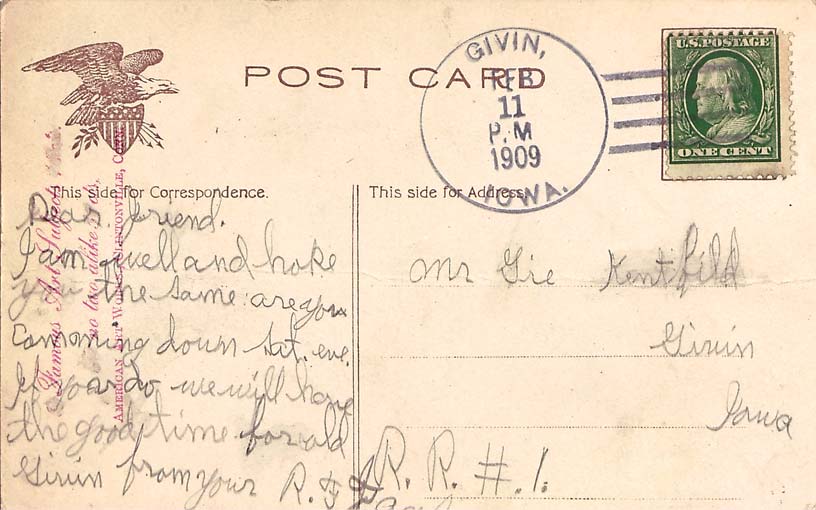 POST CARD
GIVIN,
FEB
11
P.M
1909
IOWA.
U.S. POSTAGE
ONE CENT
This side for Correspondence.
This side for Address.
Famous Art Subjects
no two alike
AMERICAN ART WORKS, CLINTONVILLE, CONN.
Dear friend.
I am well and hoke
you the same are you
Comming down Sat. eve.
If you do we will have
the good time for old
Givin from your R. F.
Mr Gie Kentfild
Givin
Iowa
R. R. #. 1.